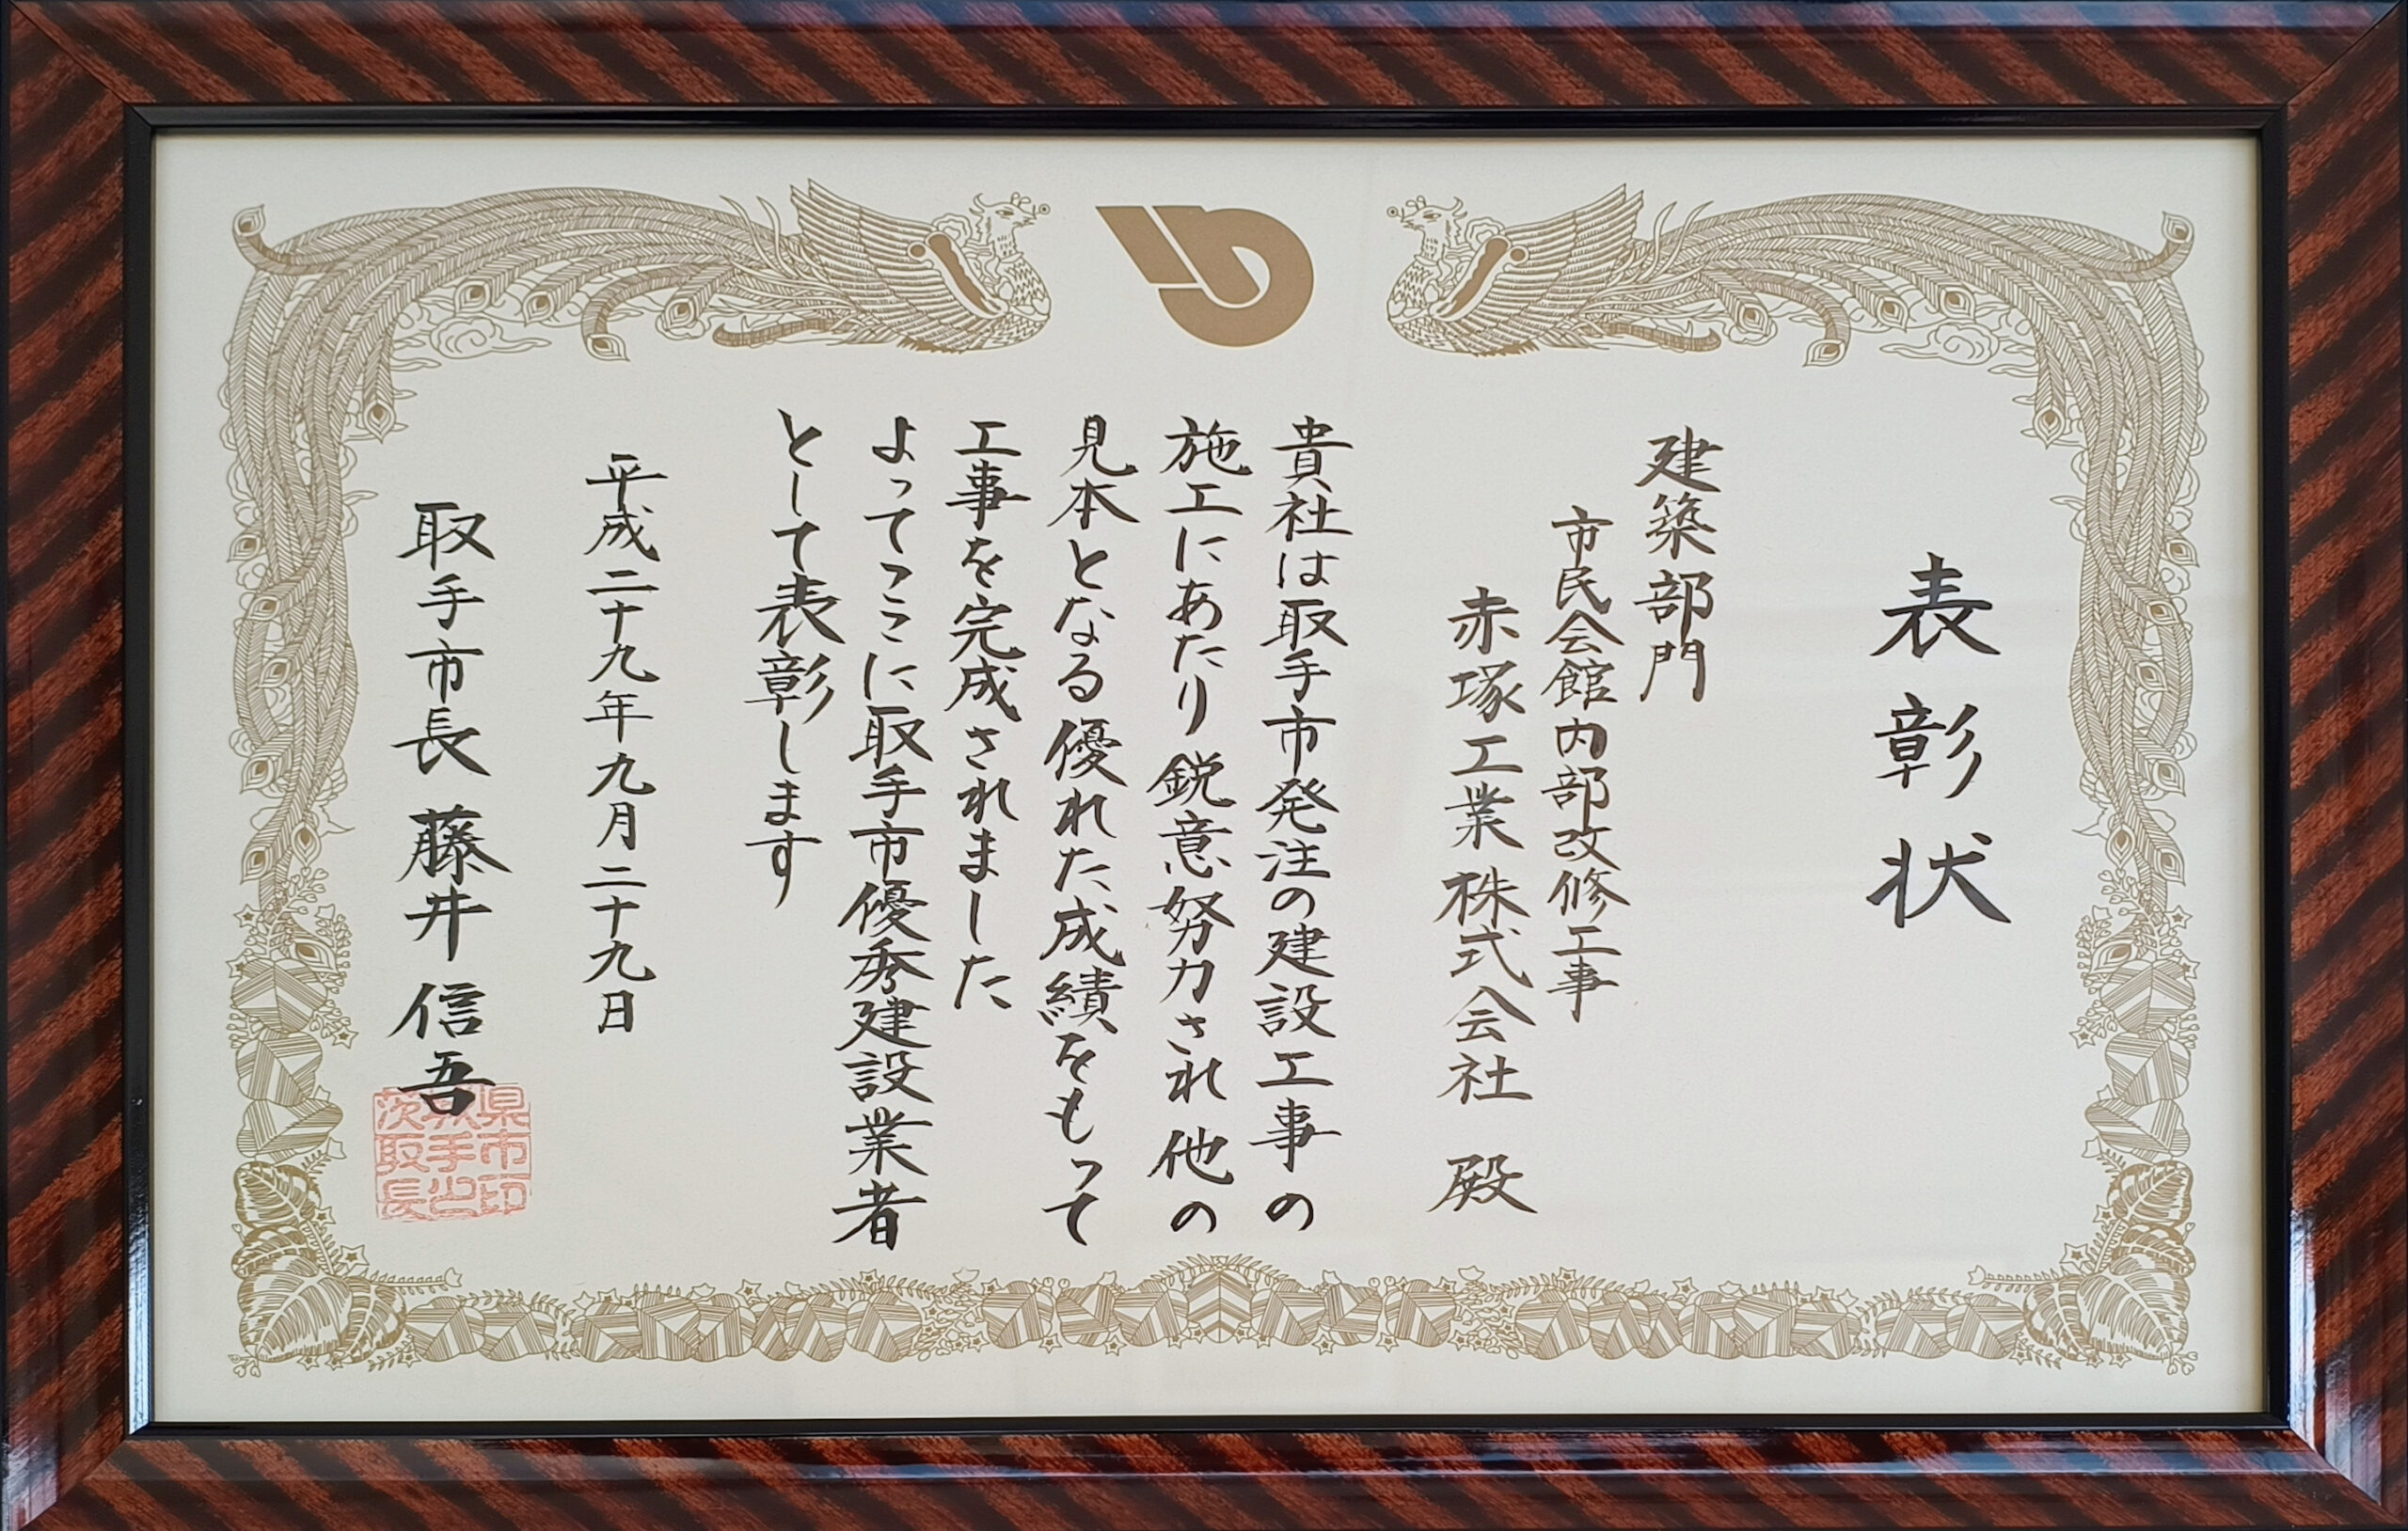 表彰状
建築部門
市民会館内部改修工事
赤塚工業株式会社 殿
貴社は取手市発注の建設工事の
施工にあたり鋭意努力され他の
見本となる優れた成績をもって
工事を完成されました
よってここに取手市優秀建設業者
として表彰します
平成二十九年九月二十九日
取手市長 藤井信吾
茨城県
取手市
長之印